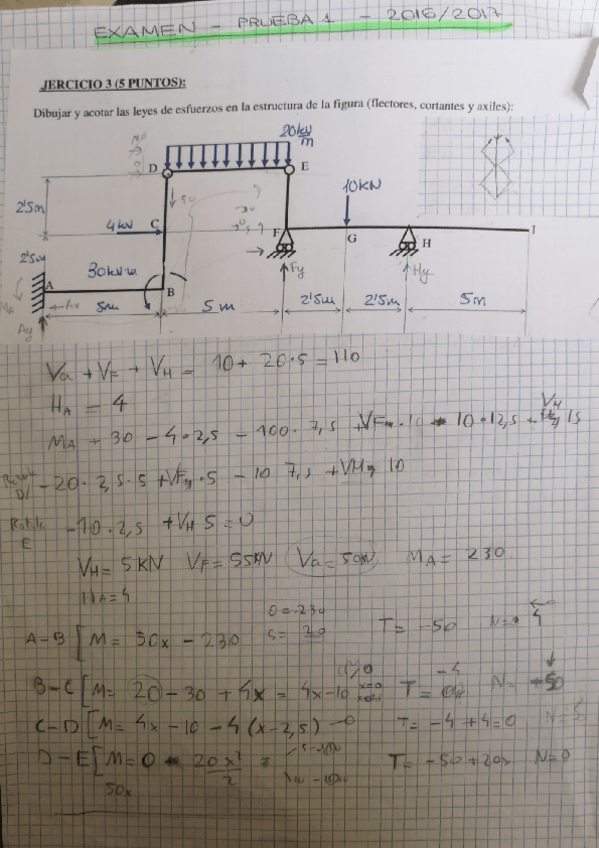 EXAMEN - PRUEBA 1 - 2016/2017
JERCICIO 3 (5 PUNTOS):
Dibujar y acotar las leyes de esfuerzos en la estructura de la figura (flectores, cortantes y axiles):
20 kN/m
D E
10KN
50
2'5m
4kN C
F G H I
2'5m
30kN·m
A B
MA
Ay
Fy Hy
5m 5m 2'5m 2'5m 5m
Va + VF + VH = 10 + 20·5 = 110
HA = 4
MA + 30 - 4·2,5 - 100·7,5 + VF·10 - 10·12,5 + VH 15
-20·2,5·5 + VF·5 - 10 7,5 + VH 10
E -10·2,5 + VH 5 = 0
VH = 5KN VF = 55KN Va = 50kN MA = 230
HA = 4
0=-230
A-B [M = 50x - 230 5= 20 T= -50 N= 4
B-C [M= 20 - 30 + 4x = 4x-10 x=0 T= -4 N= -50
C-D [M= 4x - 10 - 4(x-2,5) =0 T= -4+4=0 N=
D-E [M= 0 - 20x²/2 T= -50+20x N=0
50x